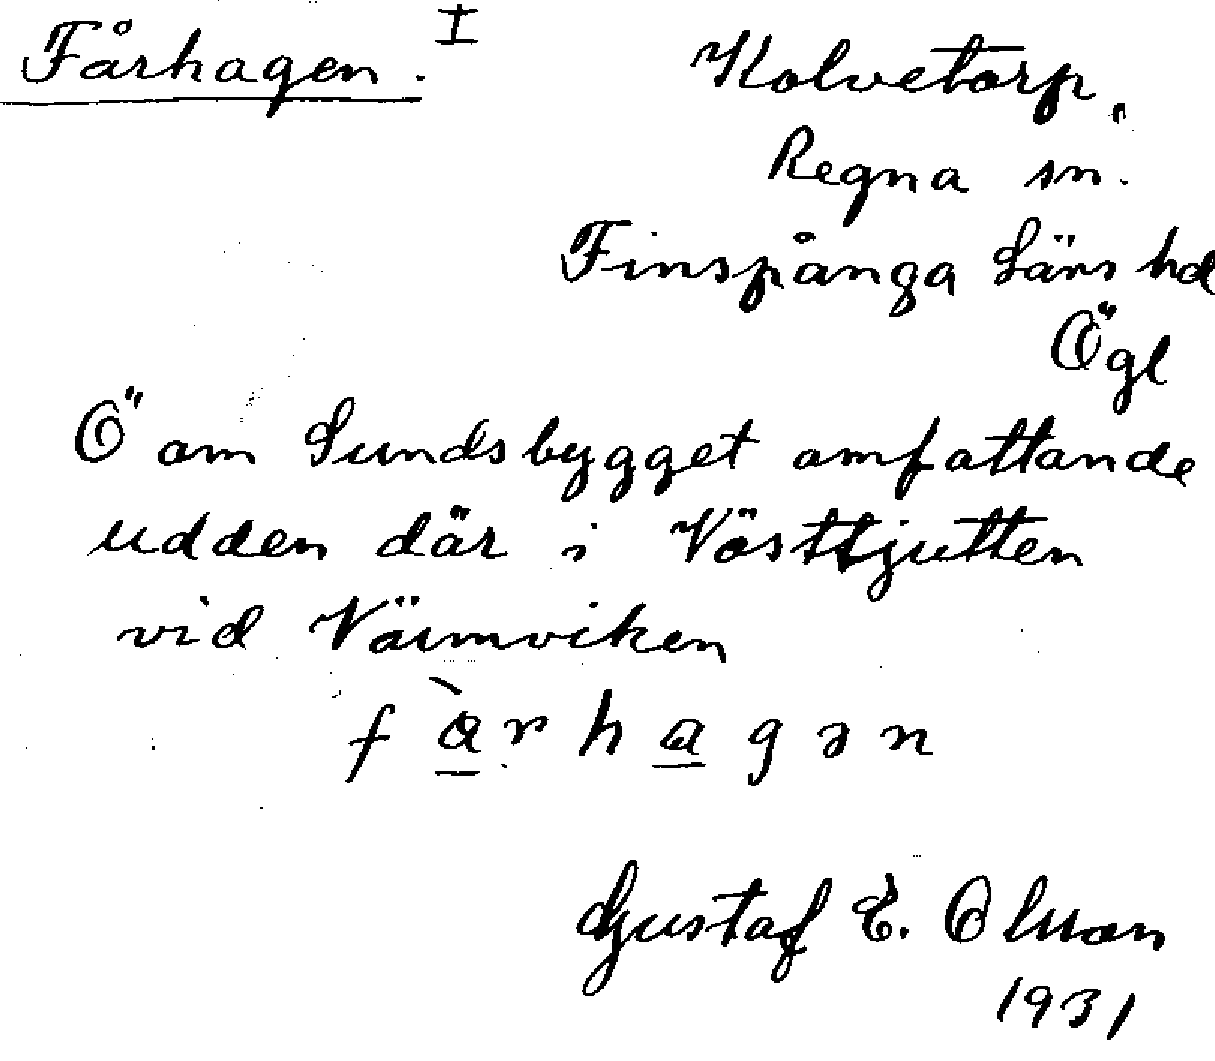 Fårhagen. I
Kolvetorp,
Regna sn.
Finspånga Läns hd
Ögl
Ö om Sundsbygget omfattande
udden där i Västtjutten
vid Värmviken
fàrhagən
Gustaf E. Olsson
1931